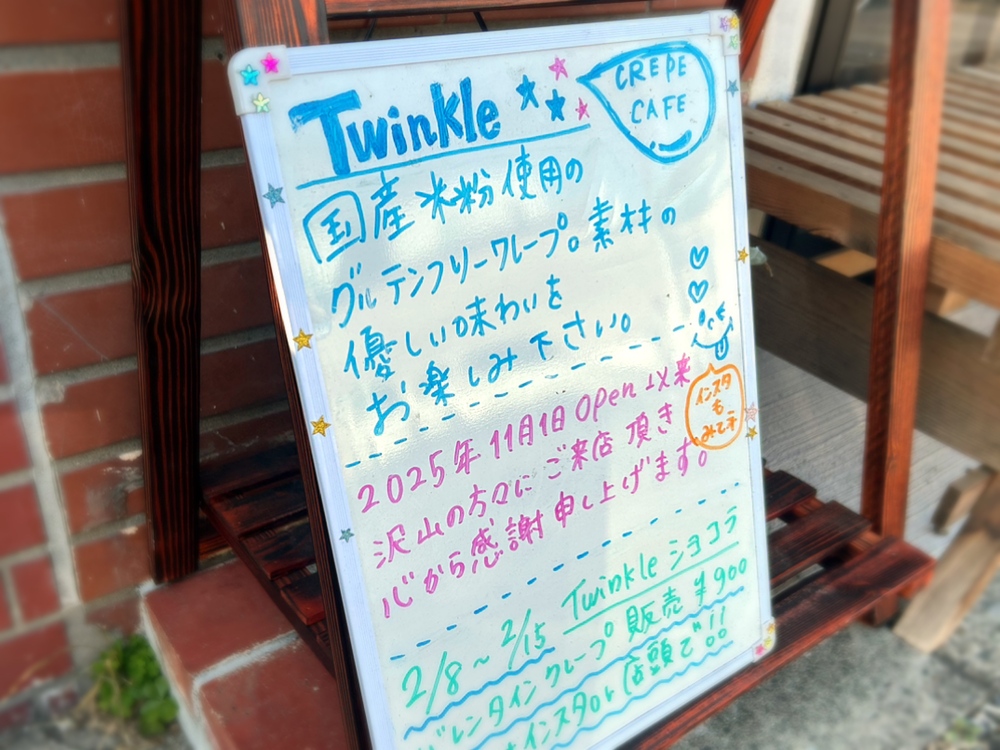 Twinkle
CREPE
CAFE
国産米粉使用の
グルテンフリークレープ。素材の
優しい味わいを
お楽しみ下さい。
インスタ
も
みて
2025年11月1日 Open以来
沢山の方々にご来店頂き
心から感謝申し上げます。
2/8~2/15 Twinkle ショコラ
バレンタインクレープ 販売 ¥900
インスタor店頭で!!